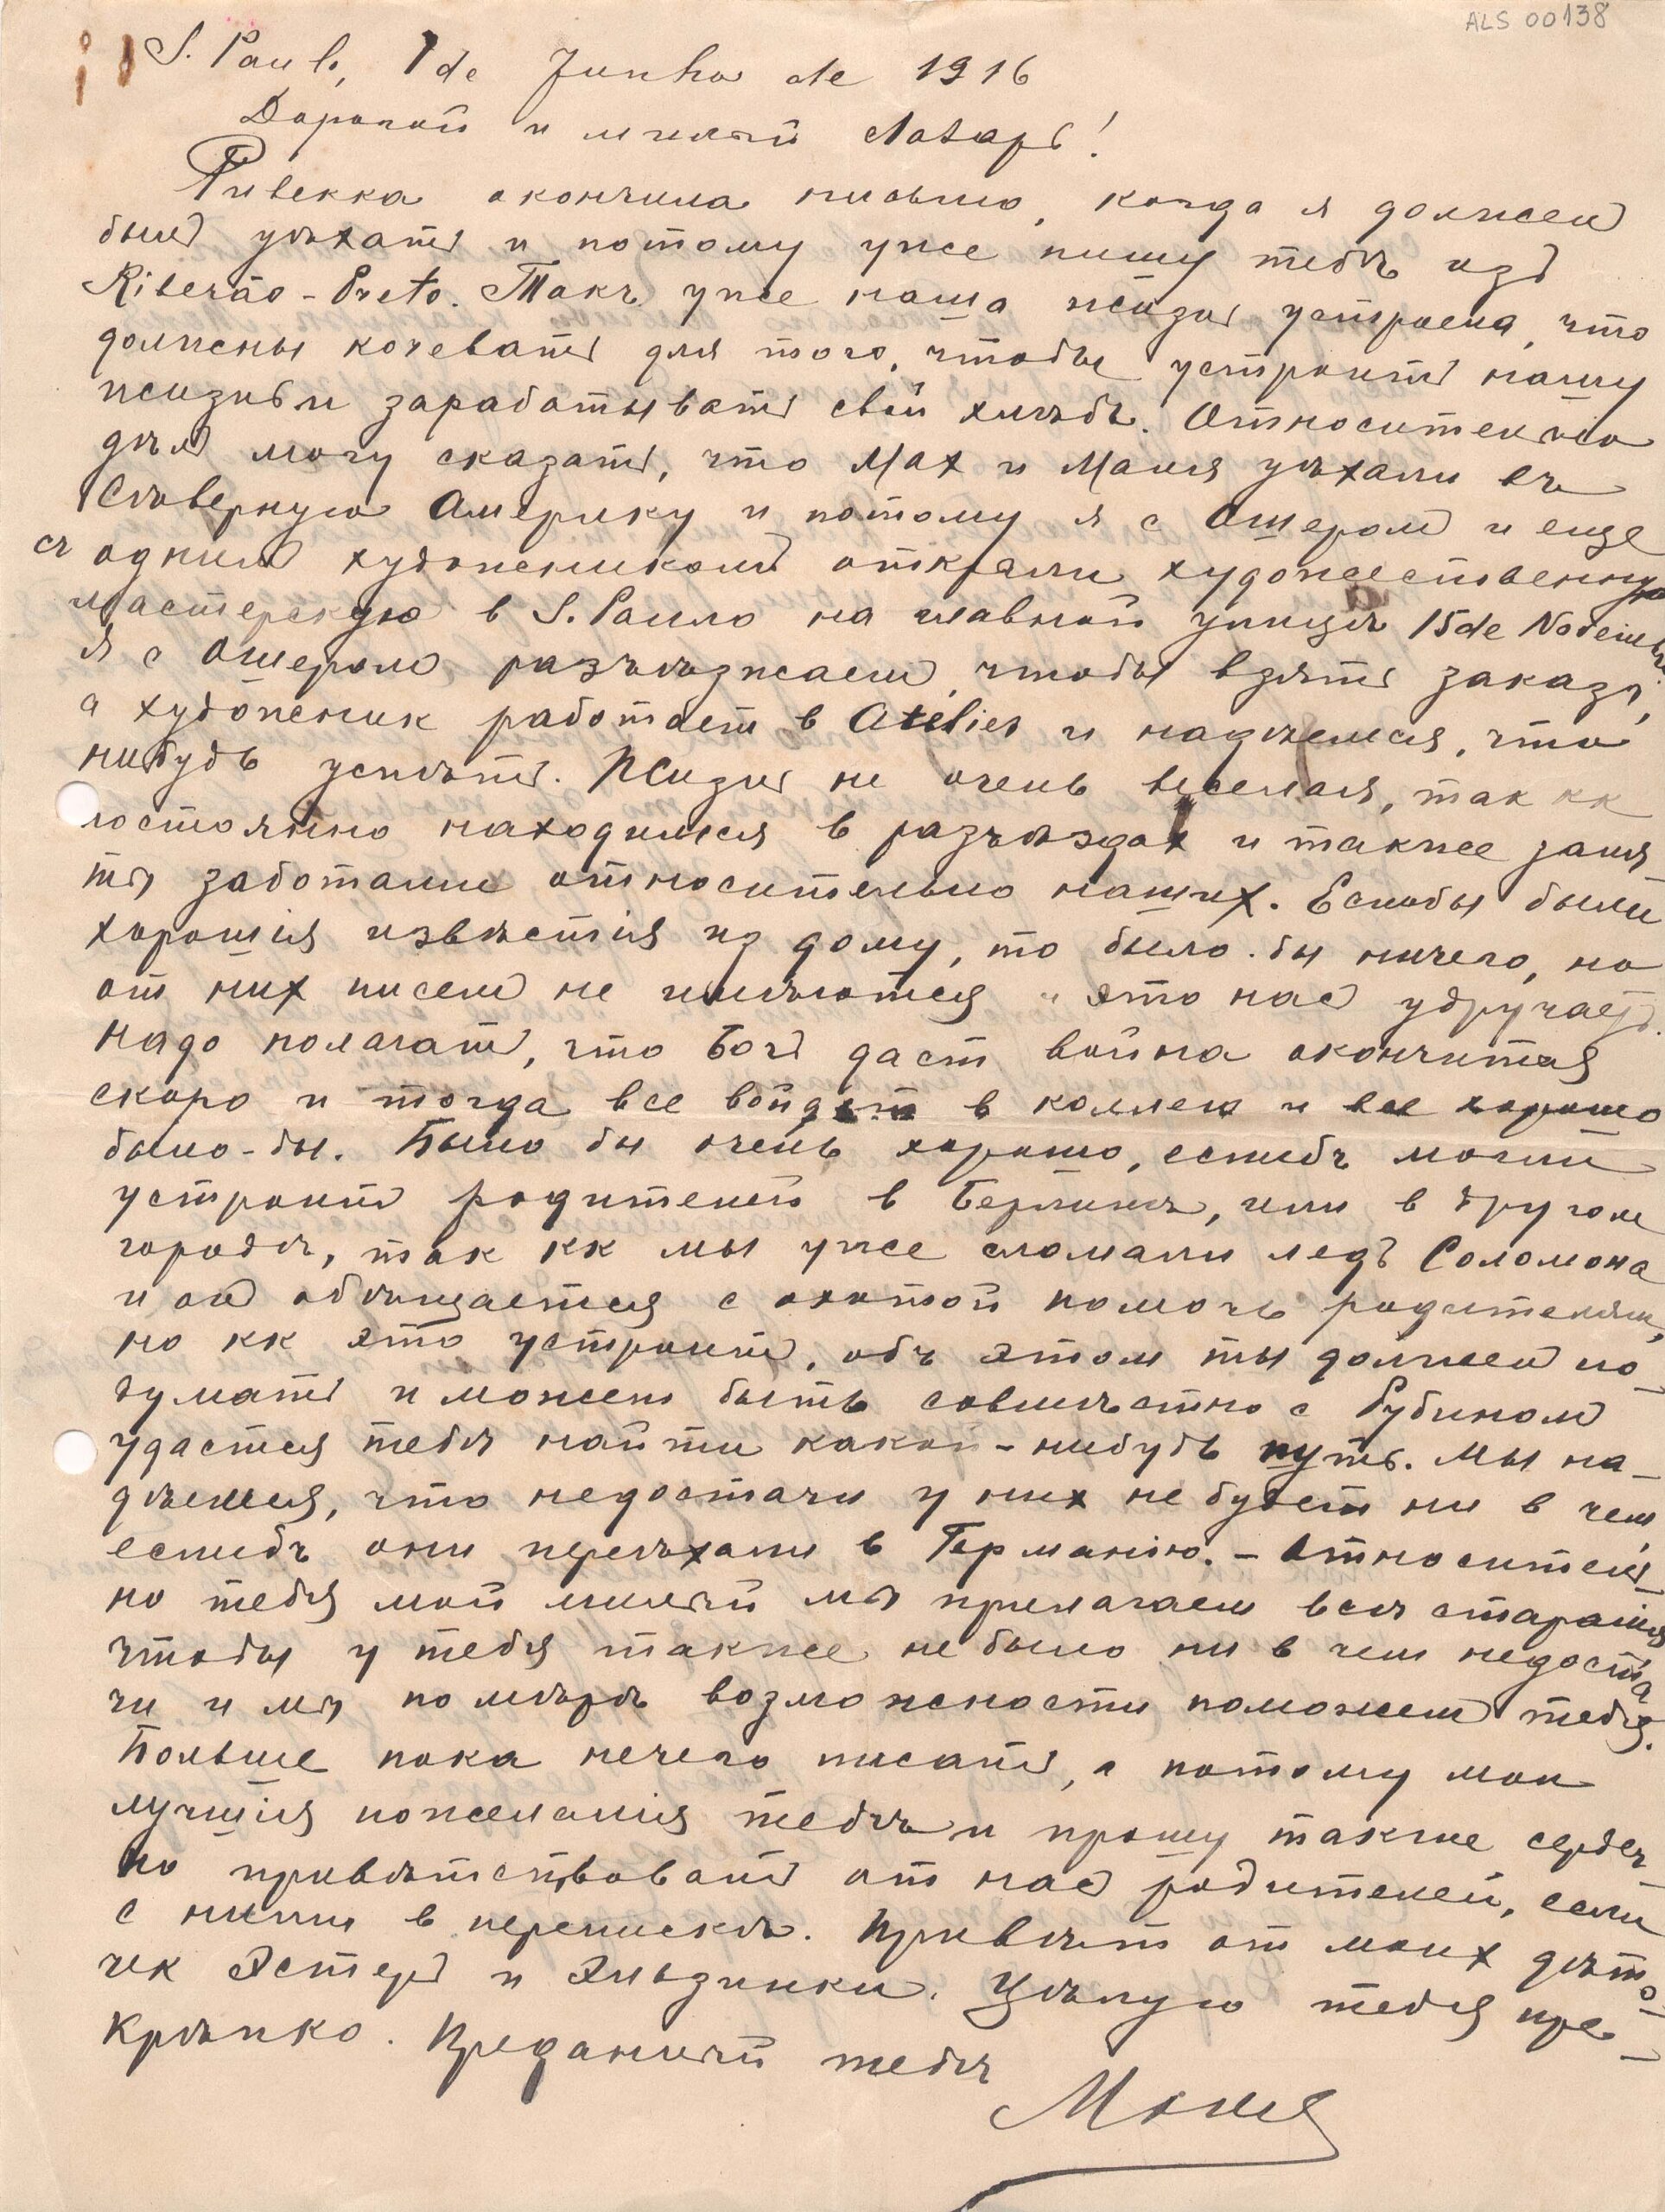 ALS 00138
S. Paulo, 1 de Junho de 1916
Дорогой и милый Лазарь!
Ривекка окончила письмо, когда я должен
был уѣхать и потому уже пишу тебѣ изъ
Ribeirão-Preto. Такъ уже наша жизнь устроена, что
должны кочевать для того, чтобы устроить нашу
жизнь и зарабатывать свой хлѣбъ. Относительно
дѣл могу сказать, что Мах и Маня уѣхали въ
Сѣверную Америку и потому я с Ошером и еще
съ одним художником открыли художественную
мастерскую в S. Пауло на главной улицѣ 15 de Novembro
Я с Ошером разъѣзжаем, чтобы взять заказы,
а художник работает в Atelier и надѣемся, что
нибудь успѣть. Жизнь не очень веселая, так кк
постоянно находимся в разъѣздах и также заня-
ты заботами относительно наших. Еслибы были
хорошія извѣстія из дому, то было-бы ничего, но
от них писем не имѣются и это нас удручаетъ.
Надо полагать, что Богъ даст война окончится
скоро и тогда все войдет в колле и все хорошо
было-бы. Было бы очень хорошо, еслибъ могли
устроить родителей в Берлинѣ, или в другом
городѣ, так кк мы уже сломали ледъ Соломона
и он обѣщается с охотой помочь родителям,
но кк это устроить, объ этом ты должен по-
думать и может быть совмѣстно с Рубином
удастся тебѣ найти какой-нибудь путь. Мы на-
дѣемся, что недостачи у них не будет ни в чем
еслибъ они переѣхали в Германію. - Относитель-
но тебя мой милый мы прилагаем всѣ старанія
чтобы у тебя также не было ни в чем недоста-
чи и мы по мѣрѣ возможности поможем тебѣ.
Больше пока нечего писать, а потому мои
лучшія пожеланія тебѣ и прошу также сердеч-
но привѣтствовать от нас родителей, если
с ними в перепискѣ. Привѣт от моих дѣто-
чек Эстер и Эльзинки. Цѣлую тебя пре-
крѣпко. Преданный тебѣ
Моня